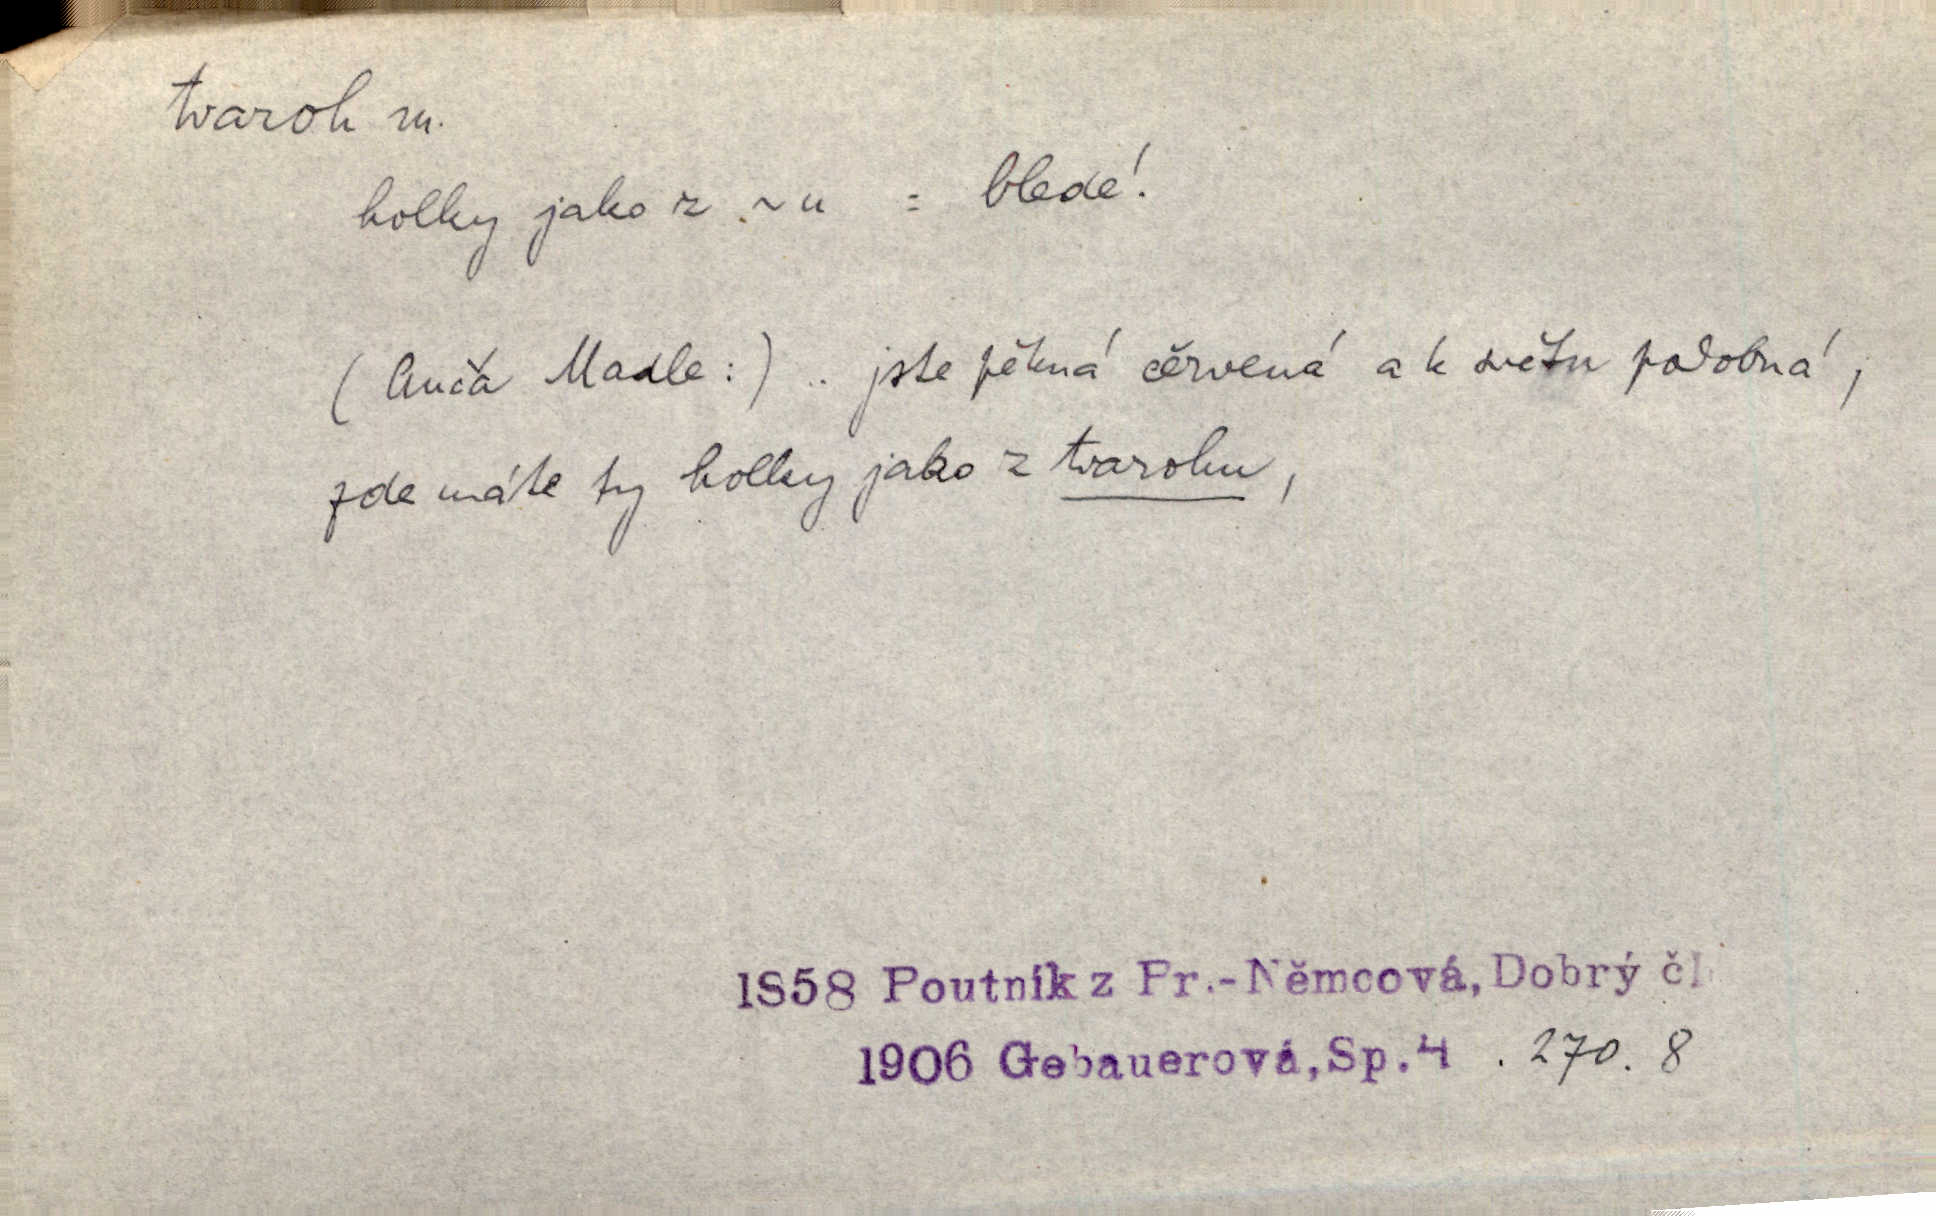 tvaroh m.
holky jako z ~u = bledé!
(Anča Madle:) .. jste pěkná červená a k světu podobná,
zde máte ty holky jako z tvarohu,
1858 Poutník z Pr.-Němcová, Dobrý čl
1906 Gebauerová, Sp.4 . 270. 8